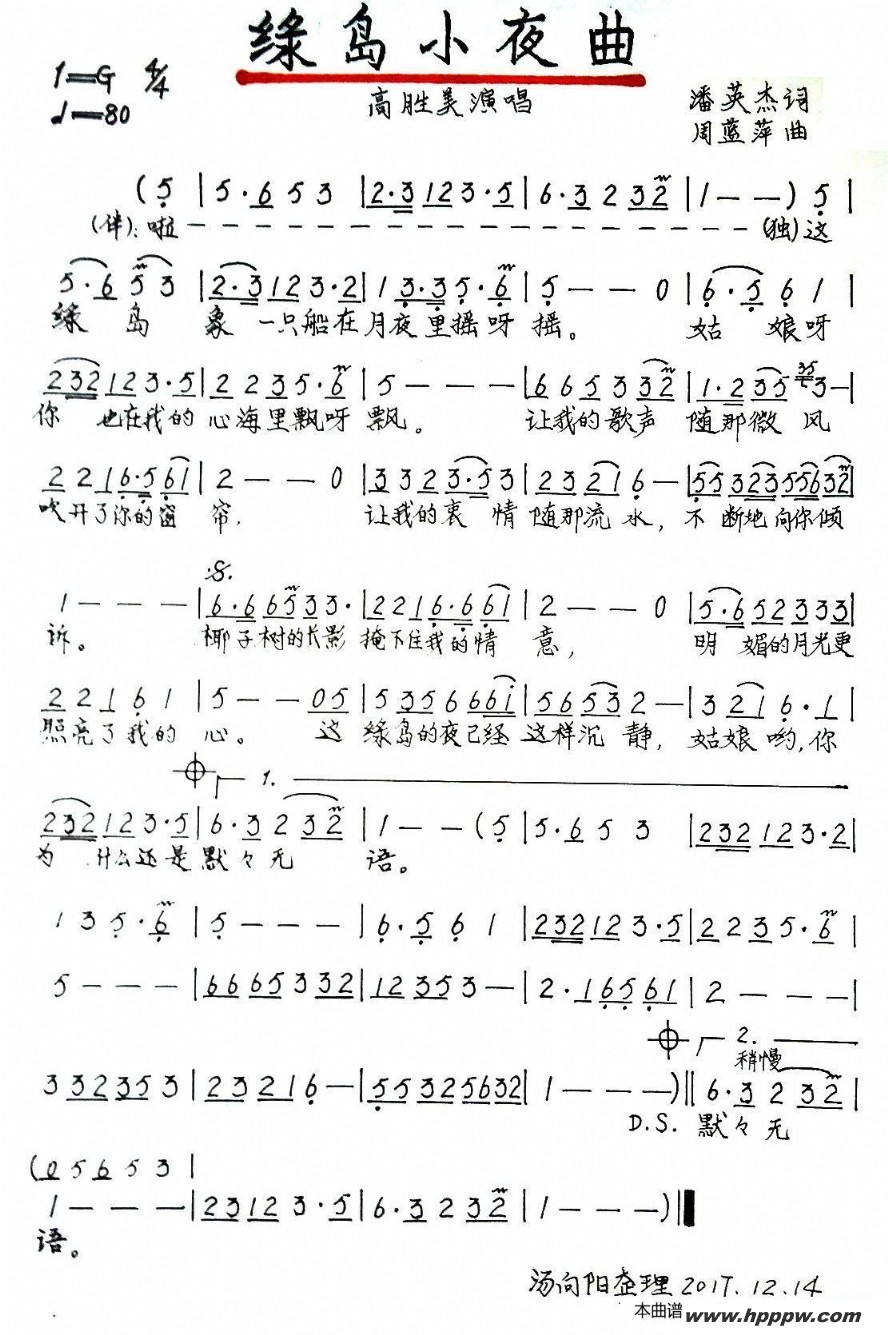 绿岛小夜曲
1=G 4/4
♩=80
高胜美演唱
潘英杰词
周蓝萍曲
(5 | 5·6 5 3 | 2·3 1 2 3·5 | 6·3 2 3 2 | 1 - - ) 5 |
(伴):啦 - - - - - - - - - - - - - - - - (独)这
5·6 5 3 | 2·3 1 2 3·2 | 1 3·3 5·6 | 5 - - 0 | 6·5 6 1 |
绿 岛 象 一只船在月夜里摇呀摇。 姑 娘呀
2 3 2 1 2 3·5 | 2 2 3 5·6 | 5 - - - | 6 6 5 3 3 2 | 1·2 3 5 35 3 - |
你 也在我的心海里飘呀飘。 让我的歌声 随那微风
2 2 1 6·5 6 1 | 2 - - 0 | 3 3 2 3·5 3 | 2 3 2 1 6 - | 5 5 3 2 3 5 5 6 3 2 |
吹开了你的窗 帘, 让我的衷 情随那流水, 不断地向你倾
1 - - - | 6·6 6 5 3 3· | 2 2 1 6·6 6 1 | 2 - - 0 | 5·6 5 2 3 3 3 3 |
诉。 椰子树的长影 掩不住我的情 意, 明 媚的月光更
2 2 1 6 1 | 5 - - 0 5 | 5 3 5 6 6 6 i | 5 6 5 3 2 - | 3 2 1 6·1 |
照亮了我的 心。 这 绿岛的夜已经 这样沉 静, 姑娘哟,你
1.
2 3 2 1 2 3·5 | 6·3 2 3 2 | 1 - - (5 | 5·6 5 3 | 2 3 2 1 2 3·2 |
为 什么还是默々无 语。
1 3 5·6 | 5 - - - | 6·5 6 1 | 2 3 2 1 2 3·5 | 2 2 3 5·6 |
5 - - - | 6 6 6 5 3 3 2 | 1 2 3 5 3 - | 2·1 6 5 6 1 | 2 - - - |
2.
稍慢
3 3 2 3 5 3 | 2 3 2 1 6 - | 5 5 3 2 5 6 3 2 | 1 - - - ) || 6·3 2 3 2 |
D.S. 默々无
(0 5 6 5 3 |
1 - - - | 2 3 1 2 3·5 | 6·3 2 3 2 | 1 - - - ) ||
语。
汤向阳整理2017.12.14
本曲谱 www.hpppw.com